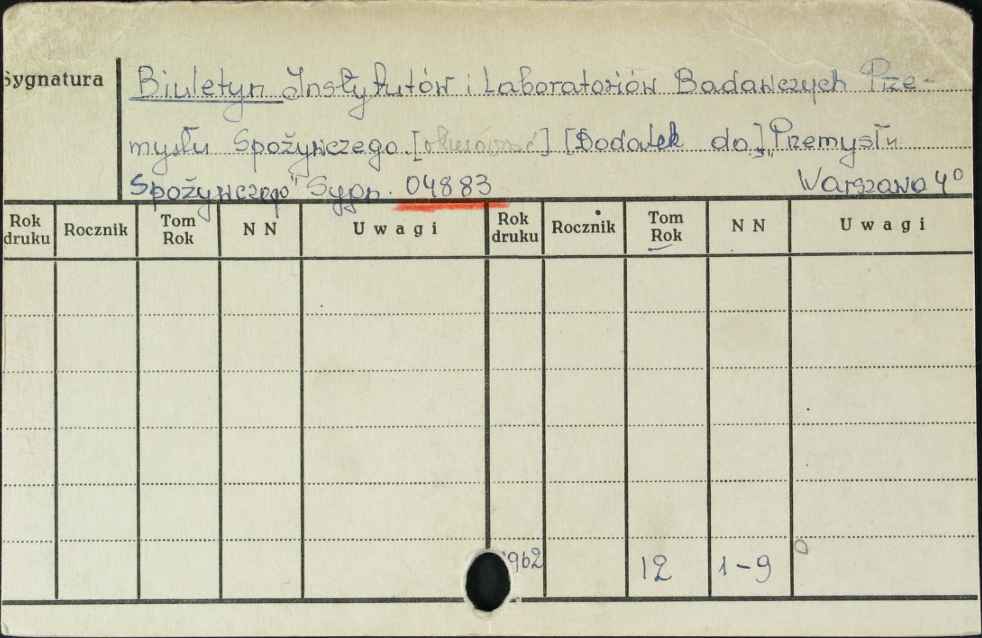 Sygnatura
Biuletyn Instytutów i Laboratoriów Badawczych Prze-
mysłu Spożywczego [ ] [Dodatek do] „Przemysłu
Spożywczego" Sygn. 04883 Warszawa 4°
Rok druku Rocznik Tom Rok N N Uwagi Rok druku Rocznik Tom Rok N N Uwagi
1962 12 1-9